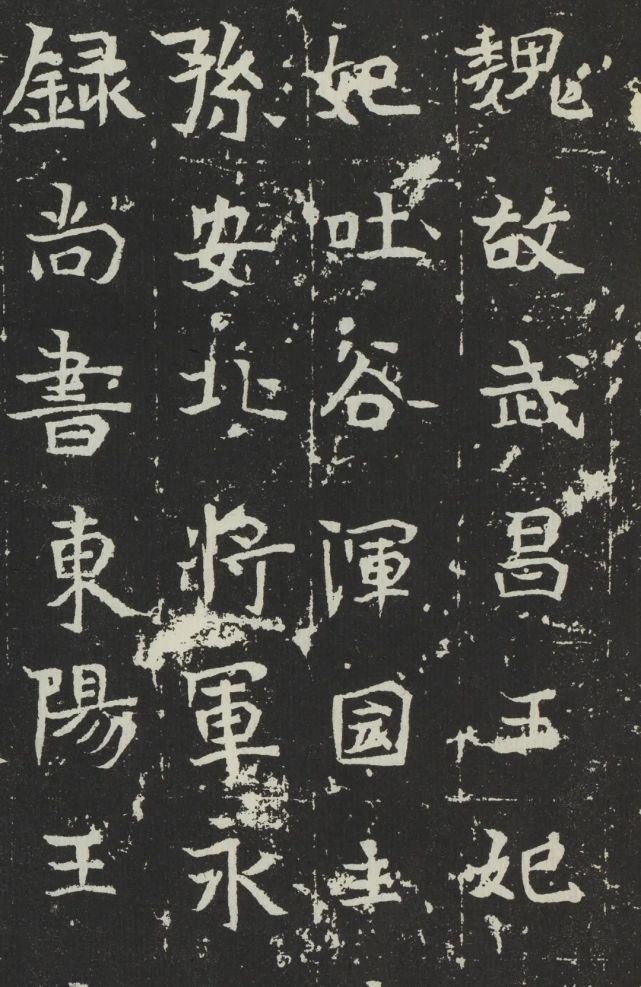 魏故武昌王妃
妃吐谷渾国主
孫安北將軍永
録尚書東陽王